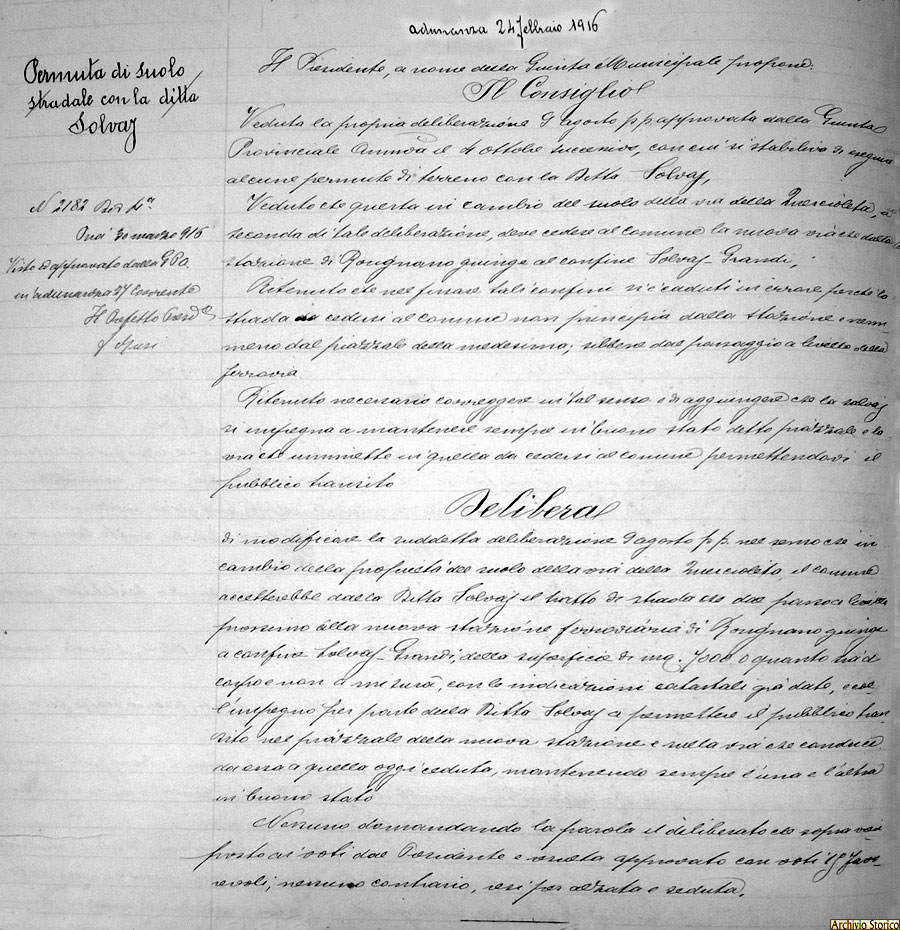 adunanza 24 febbraio 1916
Permuta di suolo
stradale con la ditta
Solvay
N 2182 Div 4ª
Pisa 30 marzo 916
Visto ed approvato dalla GPA.
in adunanza 27 corrente
Il Prefetto Presid
Il Presidente, a nome della Giunta Municipale propone:
Il Consiglio
Veduta la propria deliberazione 9 agosto p.p. approvata dalla Giunta
Provinciale Ammva il 4 ottobre successivo, con cui si stabiliva di eseguire
alcune permute di terreno con la Ditta Solvay,
Veduto che questa in cambio del suolo della via della Querciolaia, a
seconda di tale deliberazione, deve cedere al comune la nuova via che dalla
stazione di Rosignano giunge al confine Solvay-Grandi,
Ritenuto che nel fissare tali confini si è caduti in errore perchè la
strada da cedersi al comune non principia dalla stazione e nem-
meno dal piazzale della medesimo; sibbene dal passaggio a livello della
ferrovia
Ritenuto necessario correggere in tal senso e di aggiungere che la Solvay
si impegna a mantenere sempre in buono stato detto piazzale e la
via che immette in quella da cedersi al comune permettendovi il
pubblico transito
Delibera
di modificare la suddetta deliberazione 9 agosto p.p. nel senso che in
cambio della proposta del suolo della via della il comune
accetterebbe dalla Ditta Solvay il tratto di strada che dal passo a livello
prossimo alla nuova stazione ferroviaria di Rosignano giunge
a confine Solvay-Grandi, della superficie di mq. 7000 o quanto sia a
corpo e non a misura, con le indicazioni catastali già date, e col-
l'impegno per parte della Ditta Solvay a permettere il pubblico tran-
sito nel piazzale della nuova stazione e nella via che conduce
da essa a quella oggi ceduta, mantenendo sempre l'una e l'altra
in buono stato
Nessuno domandando la parola il deliberato che sopra vien
posto ai voti dal Presidente e resta approvato con voti 15 favo-
revoli, nessuno contrario, resi per alzata e seduta.
Archivio Storico